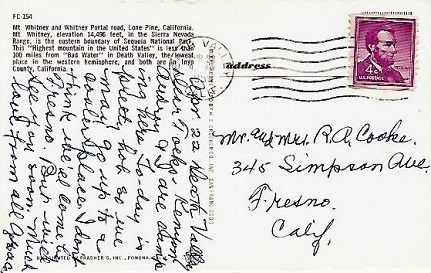 FC-154
Mt. Whitney and Whitney Portal road, Lone Pine, California.
Mt. Whitney, elevation 14,496 feet, in the Sierra Nevada
Range, is the eastern boundary of Sequoia National Park.
This "Highest mountain in the United States" is less than
100 miles from "Bad Water" in Death Valley, the lowest
place in the western hemisphere, and both are in Inyo
County, California.
Apr 22 Death Valley
Dear Folks. Kenny
Audrey & I are
in here. Today is
pretty hot so we
may go up to a
cooler place. I don't
think we'll come by
Fresno. But will
see you soon. Much
love from all
FRASHER'S, INC., POMONA
address
4¢
U.S. POSTAGE
Mr. and Mrs. R.A. Cooke.
345 Simpson Ave.
Fresno.
Calif.